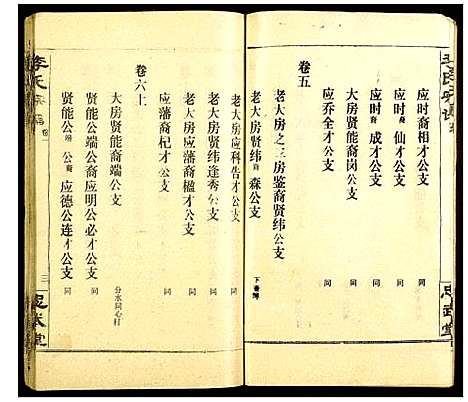 应时裔相才公支 同
应时裔仙才公支 同
应时裔成才公支 同
大房贤能裔岗公支 同
应乔全才公支 同
卷五
老大房之三房鉴裔贤纬公支
老大房贤纬裔森公支 下香溥
老大房应科告才公支 同
老大房贤纬逢秀公支 同
老大房应藩裔楹才公支 同
应藩裔杞才公支 同
卷六上
大房贤能裔端公支 分水同心村
贤能公端公裔应明公必才公支 同
贤能公端公裔应德公连才公支 同
李氏宗谱
三
忠武堂
忠武堂